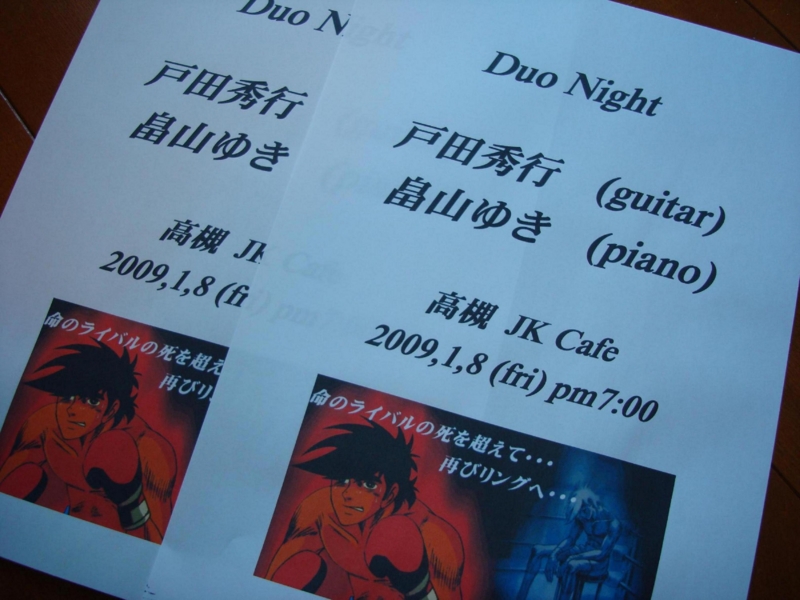 Duo N
戸田秀行
畠山ゆき
高槻 JK
2009,1,8 (fri) pm
命のライバルの死を超え
再びリ
Duo Night
戸田秀行 (guitar)
畠山ゆき (piano)
高槻 JK Cafe
2009,1,8 (fri) pm7:00
命のライバルの死を超えて・・・
再びリングへ・・・